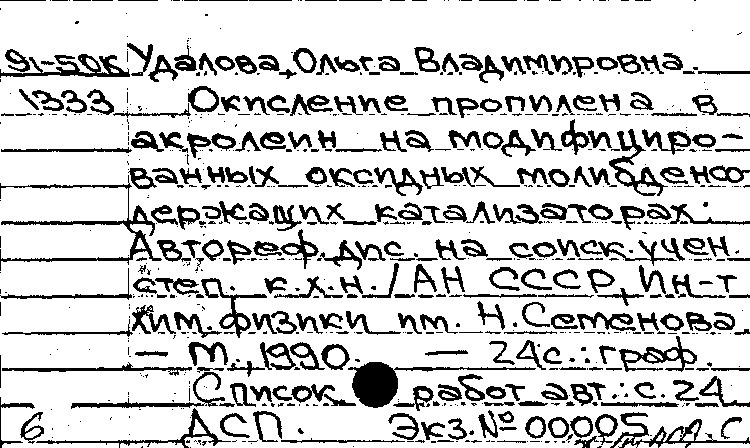 91-50К Удалова, Ольга Владимировна.
1333 Окисление пропилена в
акролеин на модифициро-
ванных оксидных молибденсо
держащих катализаторах:
Автореф. дис. на соиск. учен.
степ. к.х.н. / АН СССР, Ин-т
хим. физики им. Н. Семенова
— М., 1990. — 24с.: граф.
Список работ авт.: с. 24
6 ДСП. Экз. № 00005